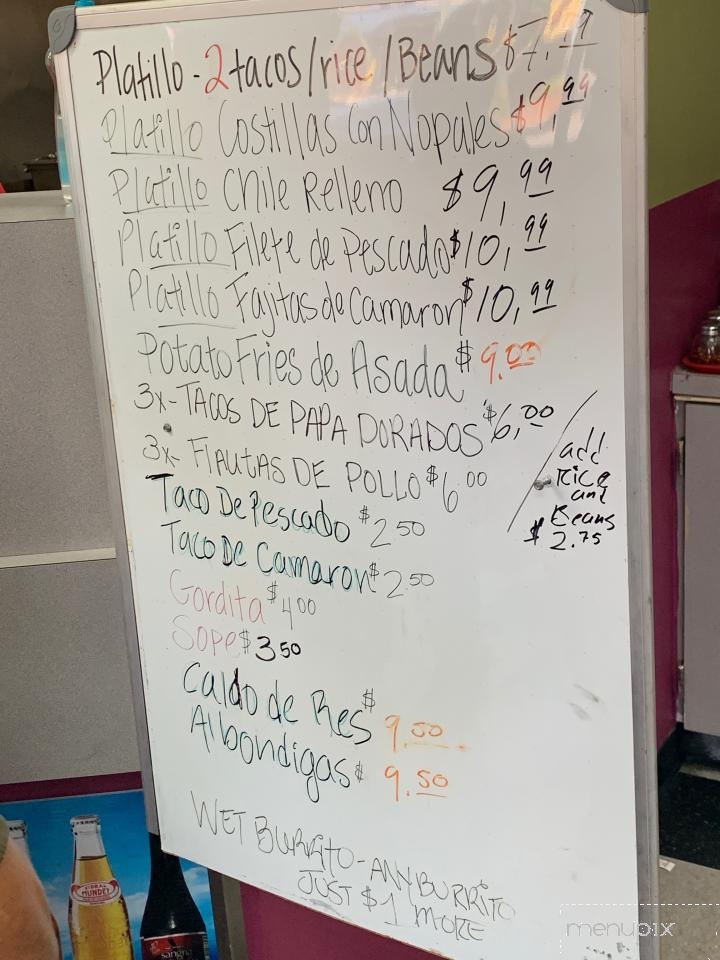 Platillo - 2 tacos/rice/Beans $7.99
Platillo Costillas Con Nopales $9,99
Platillo Chile Relleno $9,99
Platillo Filete de Pescado $10,99
Platillo Fajitas de Camaron $10,99
Potato Fries de Asada $9.00
3x- TACOS DE PAPA DORADOS $6,00
3x- FlAUTAS DE POLLO $6 00
add
Rice
and
Beans
$2.75
Taco De Pescado $2.50
Taco De Camaron $2 50
Gordita $4 00
Sope $3 50
Caldo de Res $9.50
Albondigas $9.50
WET BURRITO - ANY BURRITO
JUST $1 MORE
SIDRAL
MUNDET
sangria
menupix